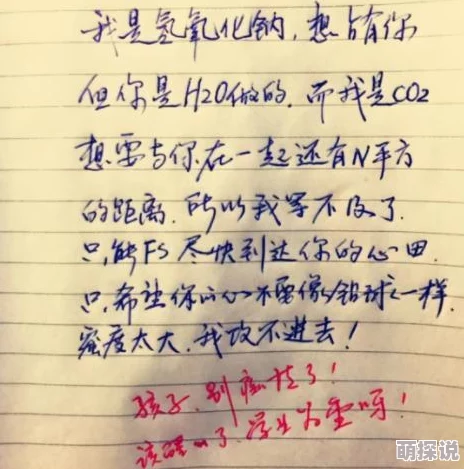 我是氢氧化钠，想占有你
但你是H2O做的，而我是CO2
想要与你在一起还有N平方
的距离，所以我等不及了，
只能FS尽快到达你的心田，
只希望你心不要像铅球一样，
密度太大，我攻不进去！
孩子，别痴情了！
该醒了，学业为重呀！
萌探说